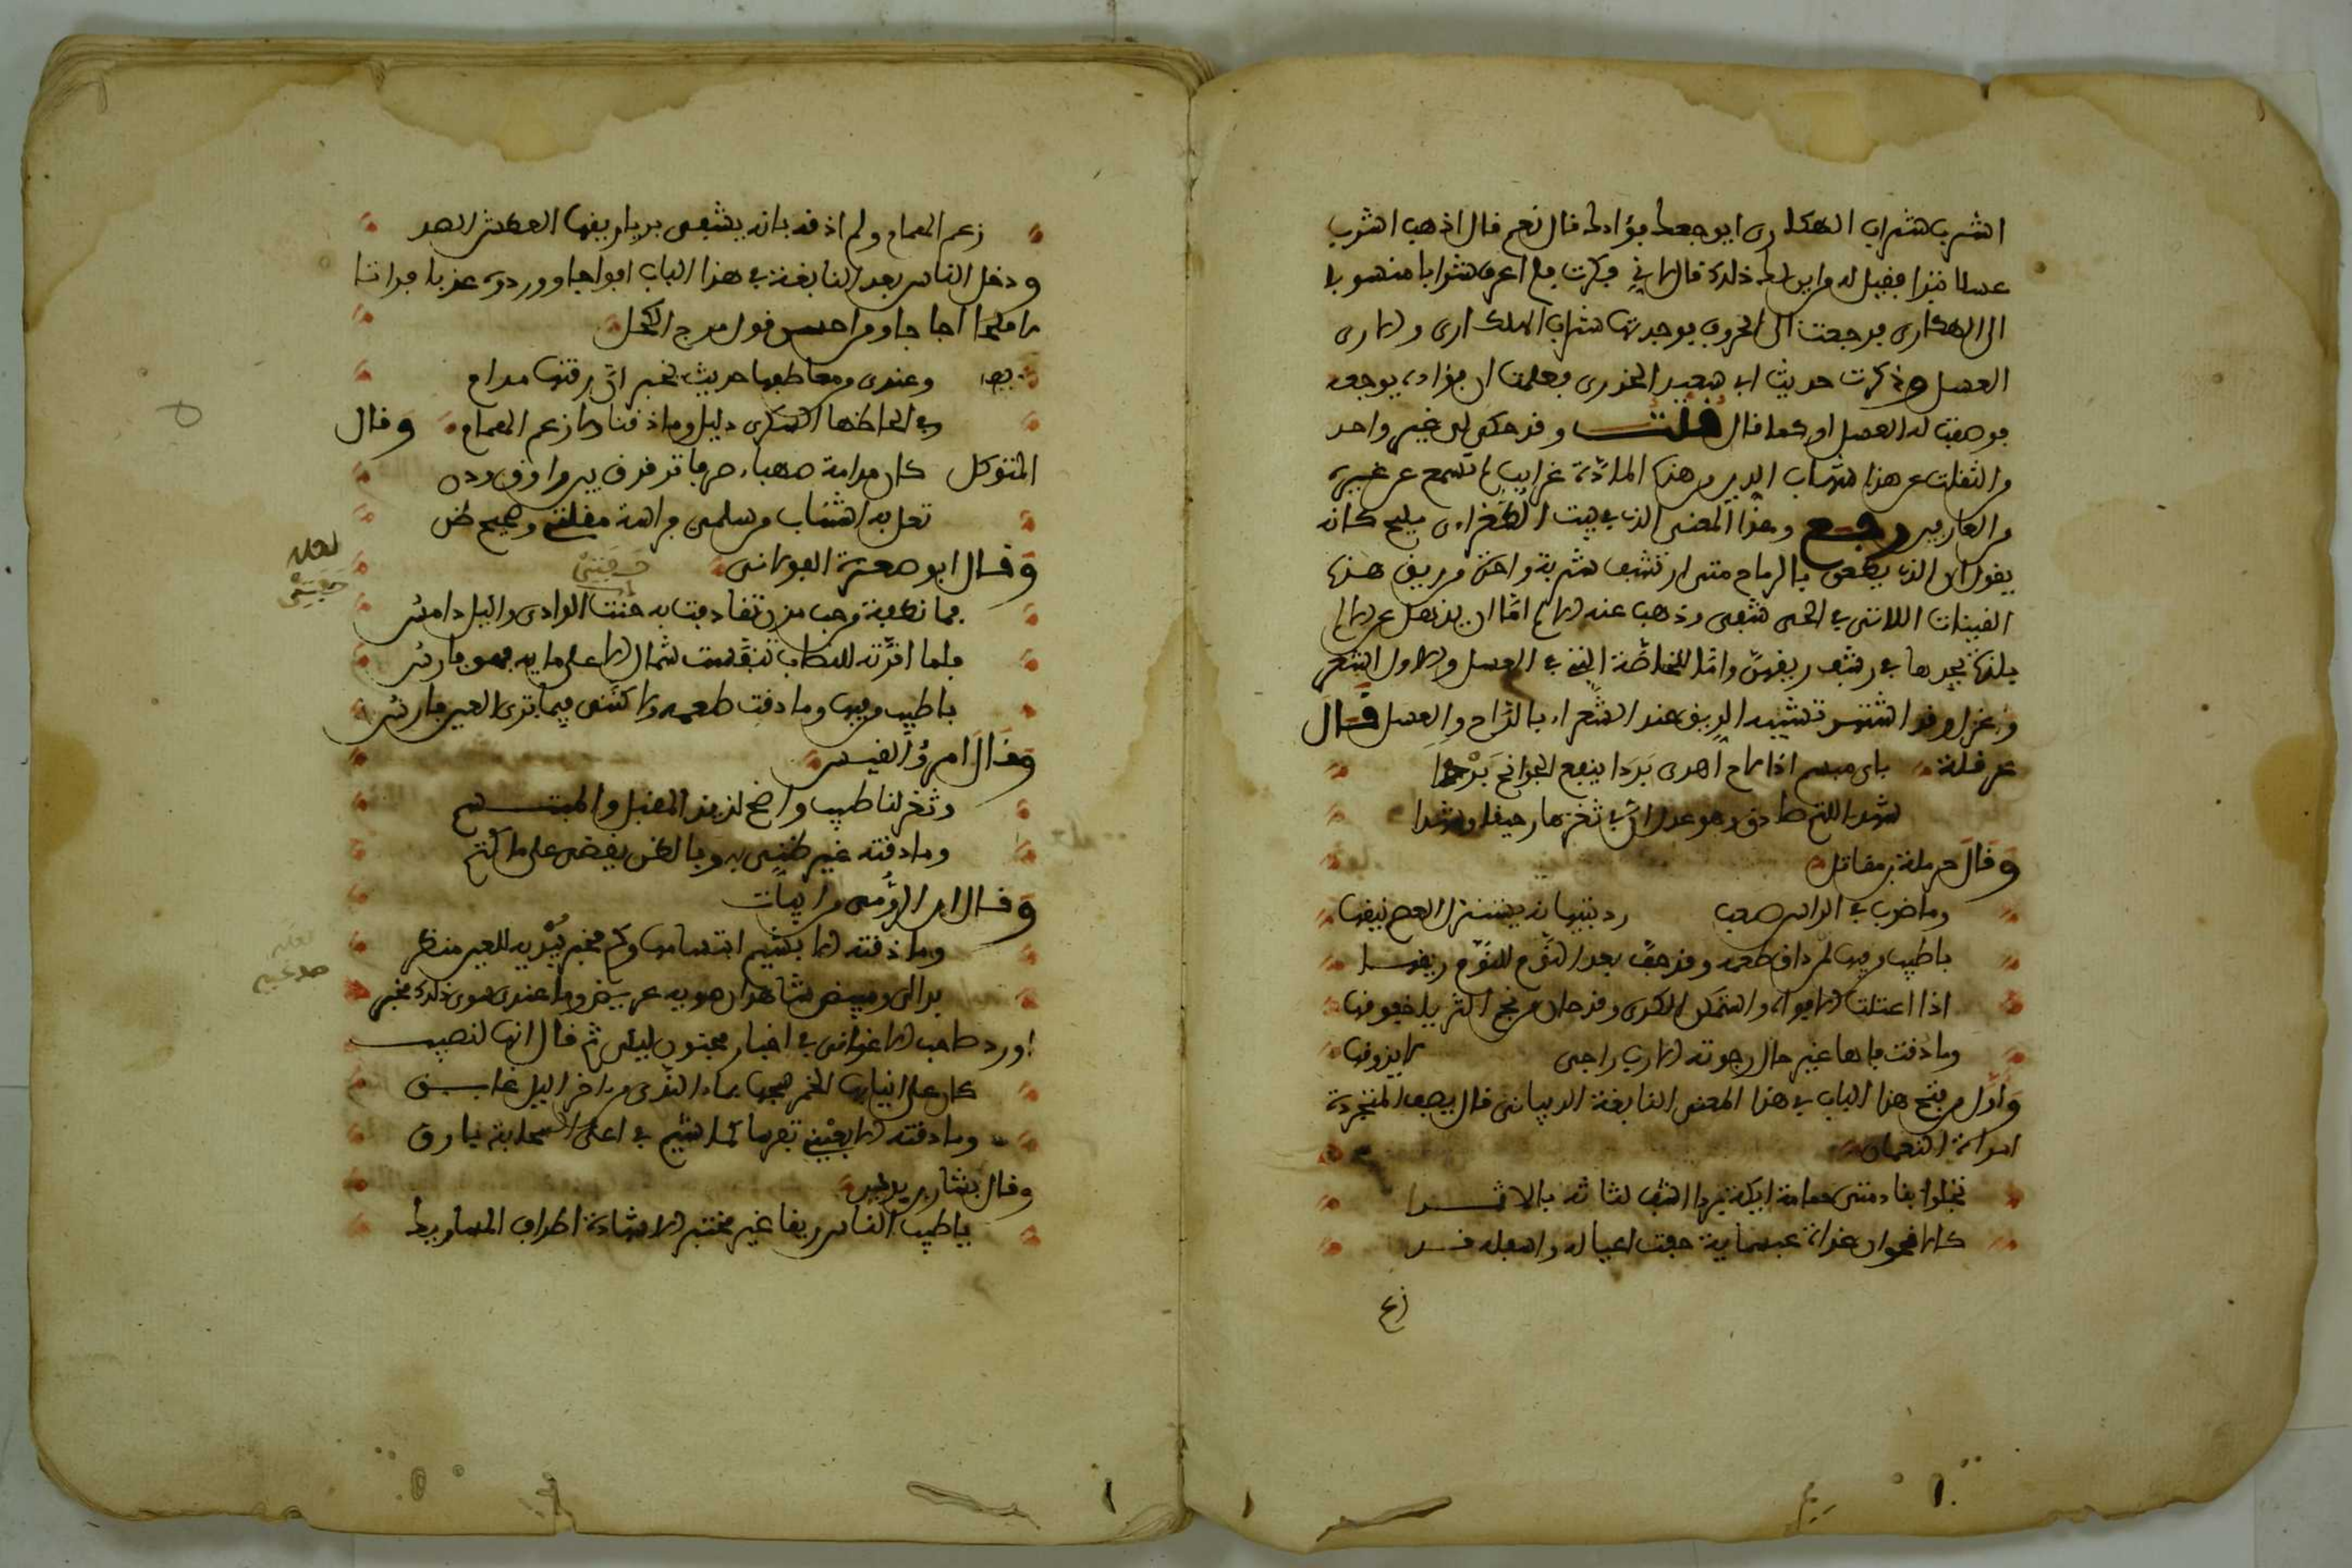 اشرب شراب الهكارى ابو جعك فؤادك قال نعم قال اذهب اشرب
عسلا فقيل له من اين لك ذلك قال انى فكرت فلم اعرف شرابا منسوبا
الى الهكارى فرجعت الى الحروف فوجدتها شراب الهكارى والارى
العسل وذكرت حديث ابى سعيد الخدرى فعلمت ان فؤاده يوجعه
فوصفت له العسل او كما قال قلت وقد حكى لى غير واحد
من الثقات عن هذا شهاب الدين من هذه المادة غرايب لم تسمع عن غيره
من العابرين رجع وهذا المعنى الذى فى بيت الطغراءى مليح كانه
يقول ان الذى يطعن بالرماح متى ارتشف شربة واحدة من ريق هذه
الفينات اللاتى فى الحى شفى وذهب عنه الالم اما ان يذهل عن الالم
بلذة يجدها فى رشف ريقهن واما للخاصة التى فى العسل والاول اشعر
واغزل وقد اشتهر تشبيه الريق عند الشعراء بالراح والعسل قال
عرقلة باى مبسم اذا لاح اهدى بردا ينقع الجوانح بردا
شهد الثم صادق وهو عدل ان فى ثغرها رحيقا وشهدا
وقال حرملة بن مقاتل
وما ضرب فى الراس صعب ردينيها نه يستنزل العصم نيقها
باطيب من فيها لمن ذاق طعمه وقد جف بعد النوم للنوم ريقها
اذا اعتلت الافواه واستمكن الكرى وقد حان من نجم الثريا خفوقها
وما ذقت فاها غير حال رجوته الا رب راجى لا يذوقها
واول من فتح هذا الباب فى هذا المعنى النابغة الذبيانى قال يصف المتجردة
امراة النعمان
تجلوا بقادمتى حمامة ايكة بردا اسف لثاته بالاثمد
كالاقحوان غداة غب سمايه جفت اعاليه واسفله ند
زع
زعم الهمام ولم اذقه بانه يشفى بريا ريقها العطش الصد
ودخل الناس بعد النابغة فى هذا الباب افواجا ووردوه عذبا فراتا
لا ملحا اجاجا ومن احسن قول مرج الكحل
وعندى من معاطفها حديث يخبر ان ريقتها مدام
وفى الحاظها السكرى دليل وما ذقنا ولا زعم الهمام وقال
المتوكل كان مدامة صهباء صرفا ترقرق بين راووق ودن
تعل به الثنايا من سليمى فراسة مقلتى وصحيح ظن
وقال ابو صعترة البولانى
فما نطفة من حب مزن تقاذفت به جنبتا الوادى والليل دامس
فلما اقرته اللصاب تنفست شمال لاعلى مايه فهو قارس
باطيب من فيها وما ذقت طعمه ولاكننى فيما ترى العين فارس
لعله
وقال امرؤ القيس
وثغر لنا طيب واضح لذيذ المقبل والمبتسم
وما ذقته غير ظنى به وبالظن يقضى على ما كتم
وقال ابن الرومى من ابيات
وما ذقته الا بشيم ابتسامها وكم مخبر يبديه للعين منظر
بدا لى وميض شاهد ان صوبه غريض وما عندى سوى ذلك مخبر
لعله
اورد صاحب الاغانى فى اخبار مجنون ليلى ثم قال انها لنصيب
كان على انيابها الخمر شجها بماء الندى من اخر اليل غابق
وما ذقته الا بعينى تفرسا كما شيم فى اعلى السحابة بارق
وقال بشار بن برد
يا طيب الناس ريقا غير مختبر الا شهادة اطراف المساويك